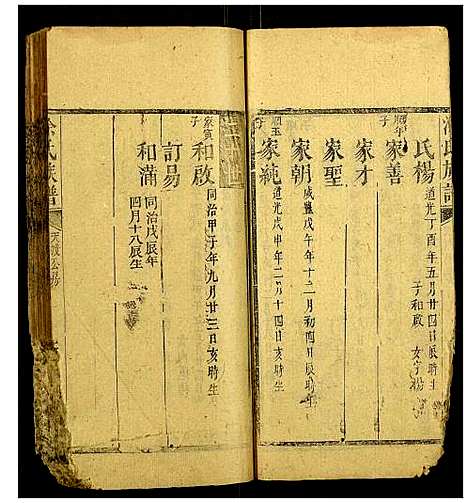 氏楊 道光丁酉年五月廿四日辰時生
子和啟 女字楊
家善
子
家才
家聖
家朝 咸豐戊午年十二月初四日辰時生
家純 道光戊申年二月十四日亥時生
子
和啟 同治甲子年九月廿三日亥時生
子
訂易
和滿 同治戊辰年四月十八辰生
氏族譜